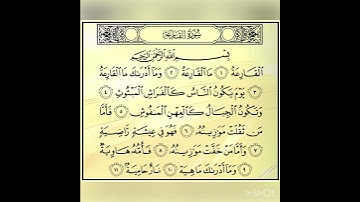 سُورَةُ القَارِعَةِ
بِسْمِ اللَّهِ الرَّحْمَٰنِ الرَّحِيمِ
الْقَارِعَةُ ١ مَا الْقَارِعَةُ ٢ وَمَا أَدْرَىٰكَ مَا الْقَارِعَةُ
٣ يَوْمَ يَكُونُ النَّاسُ كَالْفَرَاشِ الْمَبْثُوثِ ٤
وَتَكُونُ الْجِبَالُ كَالْعِهْنِ الْمَنفُوشِ ٥ فَأَمَّا
مَن ثَقُلَتْ مَوَٰزِينُهُ ٦ فَهُوَ فِي عِيشَةٍ رَّاضِيَةٍ
٧ وَأَمَّا مَنْ خَفَّتْ مَوَٰزِينُهُ ٨ فَأُمُّهُ هَاوِيَةٌ
٩ وَمَا أَدْرَىٰكَ مَا هِيَهْ ١٠ نَارٌ حَامِيَةٌ ١١
InShOt